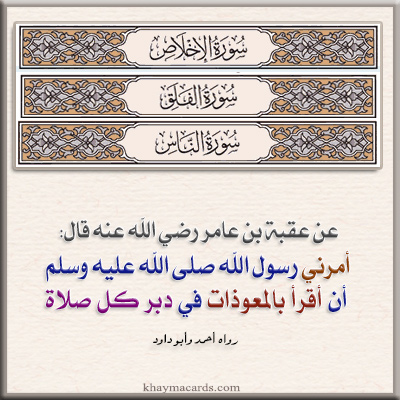 سُورَةُ الإِخْلَاصِ
سُورَةُ الفَلَقِ
سُورَةُ النَّاسِ
عن عقبة بن عامر رضي الله عنه قال:
أمرني رسول الله صلى الله عليه وسلم
أن أقرأ بالمعوذات في دبر كل صلاة
رواه أحمد وأبو داود
khaymacards.com